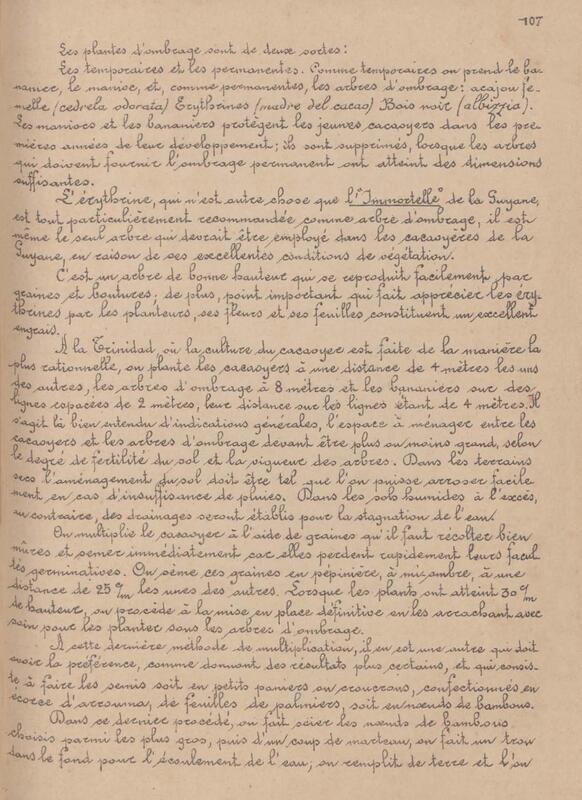 107
Les plantes d'ombrage sont de deux sortes:
Les temporaires et les permanentes. Comme temporaires on prend le ba-
nanier, le manioc, et, comme permanentes, les arbres d'ombrage: acajou fe-
melle (cedrela odorata) Erythrines (madre del cacao) Bois noir (albizzia).
Les maniocs et les bananiers protègent les jeunes cacaoyers dans les pre-
mières années de leur développement; ils sont supprimés, lorsque les arbres
qui doivent fournir l'ombrage permanent ont atteint des dimensions
suffisantes.
L'érythrine, qui n'est autre chose que l'"Immortelle" de la Guyane,
est tout particulièrement recommandée comme arbre d'ombrage, il est
même le seul arbre qui devrait être employé dans les cacaoyères de la
Guyane, en raison de ses excellentes conditions de végétation.
C'est un arbre de bonne hauteur qui se reproduit facilement par
graines et boutures; de plus, point important qui fait apprécier les éry-
thrines par les planteurs, ses fleurs et ses feuilles constituent un excellent
engrais.
A la Trinidad, où la culture du cacaoyer est faite de la manière la
plus rationnelle, on plante les cacaoyers à une distance de 4 mètres les uns
des autres, les arbres d'ombrage à 8 mètres et les bananiers sur des
lignes espacées de 2 mètres, leur distance sur les lignes étant de 4 mètres. Il
s'agit là bien entendu d'indications générales, l'espace à ménager entre les
cacaoyers et les arbres d'ombrage devant être plus ou moins grand, selon
le degré de fertilité du sol et la vigueur des arbres. Dans les terrains
secs l'aménagement du sol doit être tel que l'on puisse arroser facile
ment en cas d'insuffisance de pluies. Dans les sols humides à l'excès,
au contraire, des drainages seront établis pour la stagnation de l'eau.
On multiplie le cacaoyer à l'aide de graines qu'il faut récolter bien
mûres et semer immédiatement car elles perdent rapidement leurs facul
tés germinatives. On sème ces graines en pépinière, à mi ombre, à une
distance de 25 c/m les unes des autres. Lorsque les plants ont atteint 30 c/m
de hauteur, on procède à la mise en place définitive en les arrachant avec
soin pour les planter sous les arbres d'ombrage.
A cette dernière méthode de multiplication, il en est une autre qui doit
avoir la préférence, comme donnant des résultats plus certains, et qui consis-
te à faire les semis soit en petits paniers ou croucrous, confectionnés en
écorce d'arrouma, de feuilles de palmiers, soit en nœuds de bambous.
Dans ce dernier procédé, on fait scier les nœuds de bambous
choisis parmi les plus gros, puis d'un coup de marteau, on fait un trou
dans le fond pour l'écoulement de l'eau; on remplit de terre et l'on